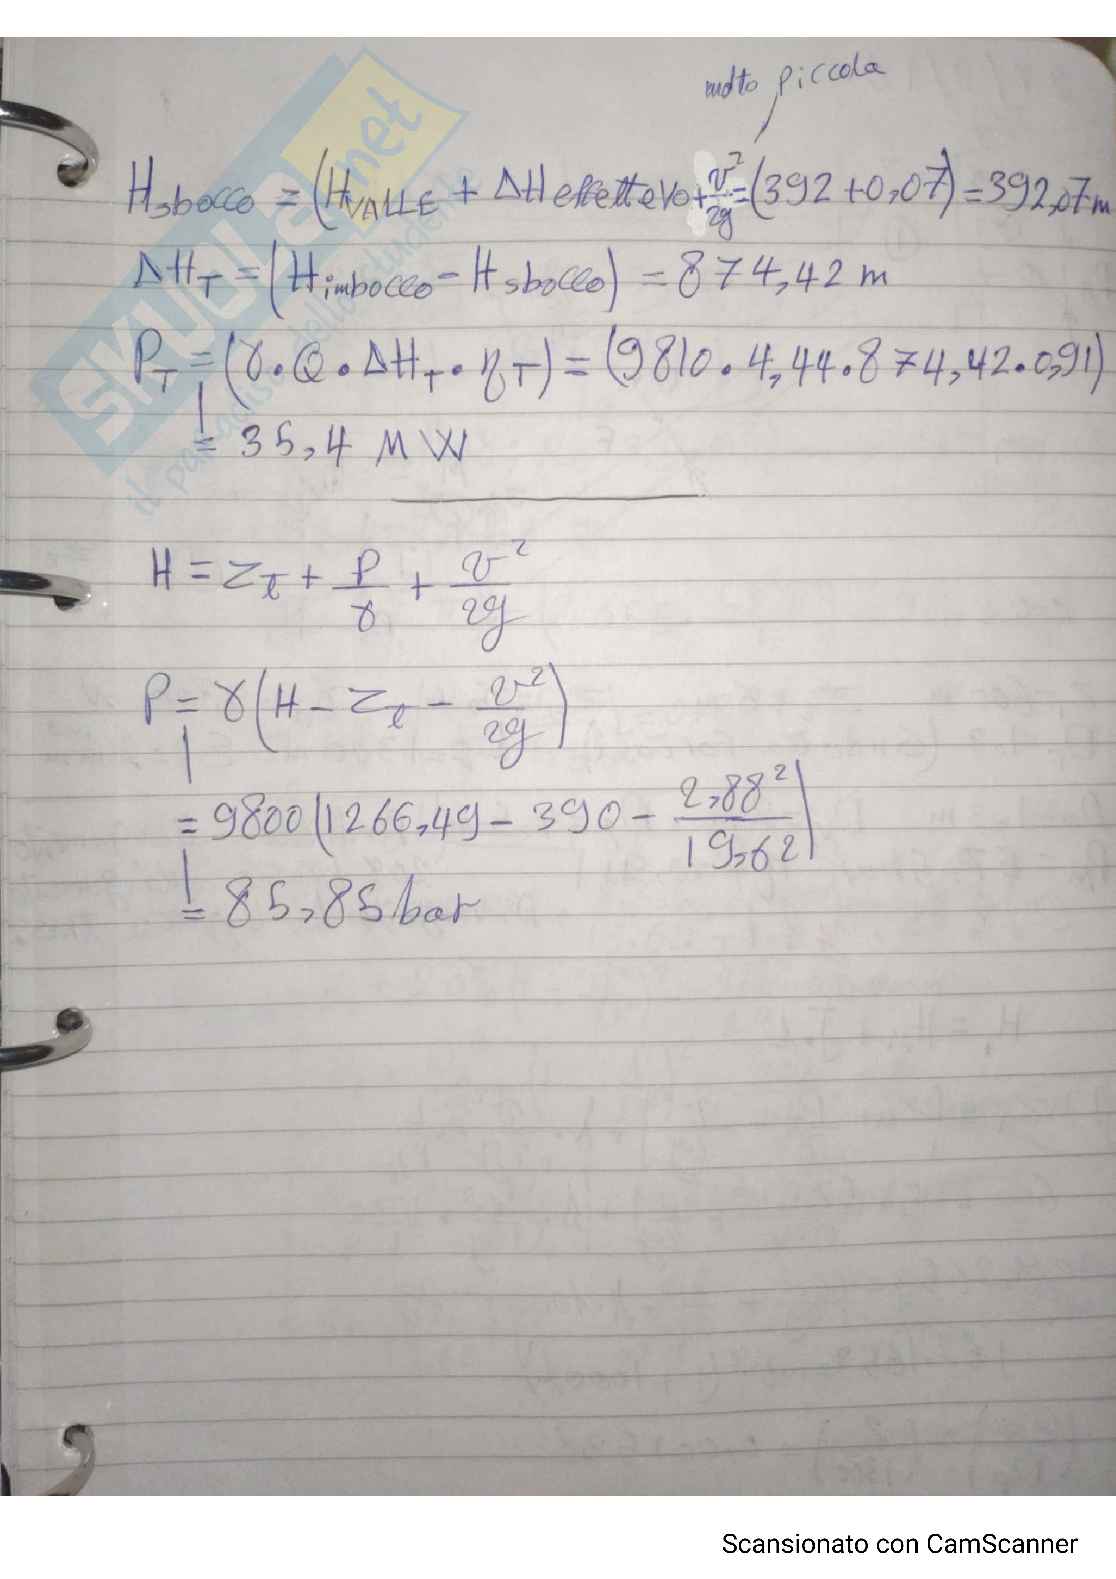 molto piccola
H sbocco = (H VALLE + ΔH effettivo + v²/2g = (392 + 0,07) = 392,07 m
ΔH_T = (H imbocco - H sbocco) = 874,42 m
P_T = (γ · Q · ΔH_T · η_T) = (9810 · 4,44 · 874,42 · 0,91)
= 35,4 MW
H = z_t + P/γ + v²/2g
P = γ (H - z_t - v²/2g)
= 9800 (1266,49 - 390 - 2,88²/19,62)
= 85,85 bar
SKUOLA.net
Scansionato con CamScanner